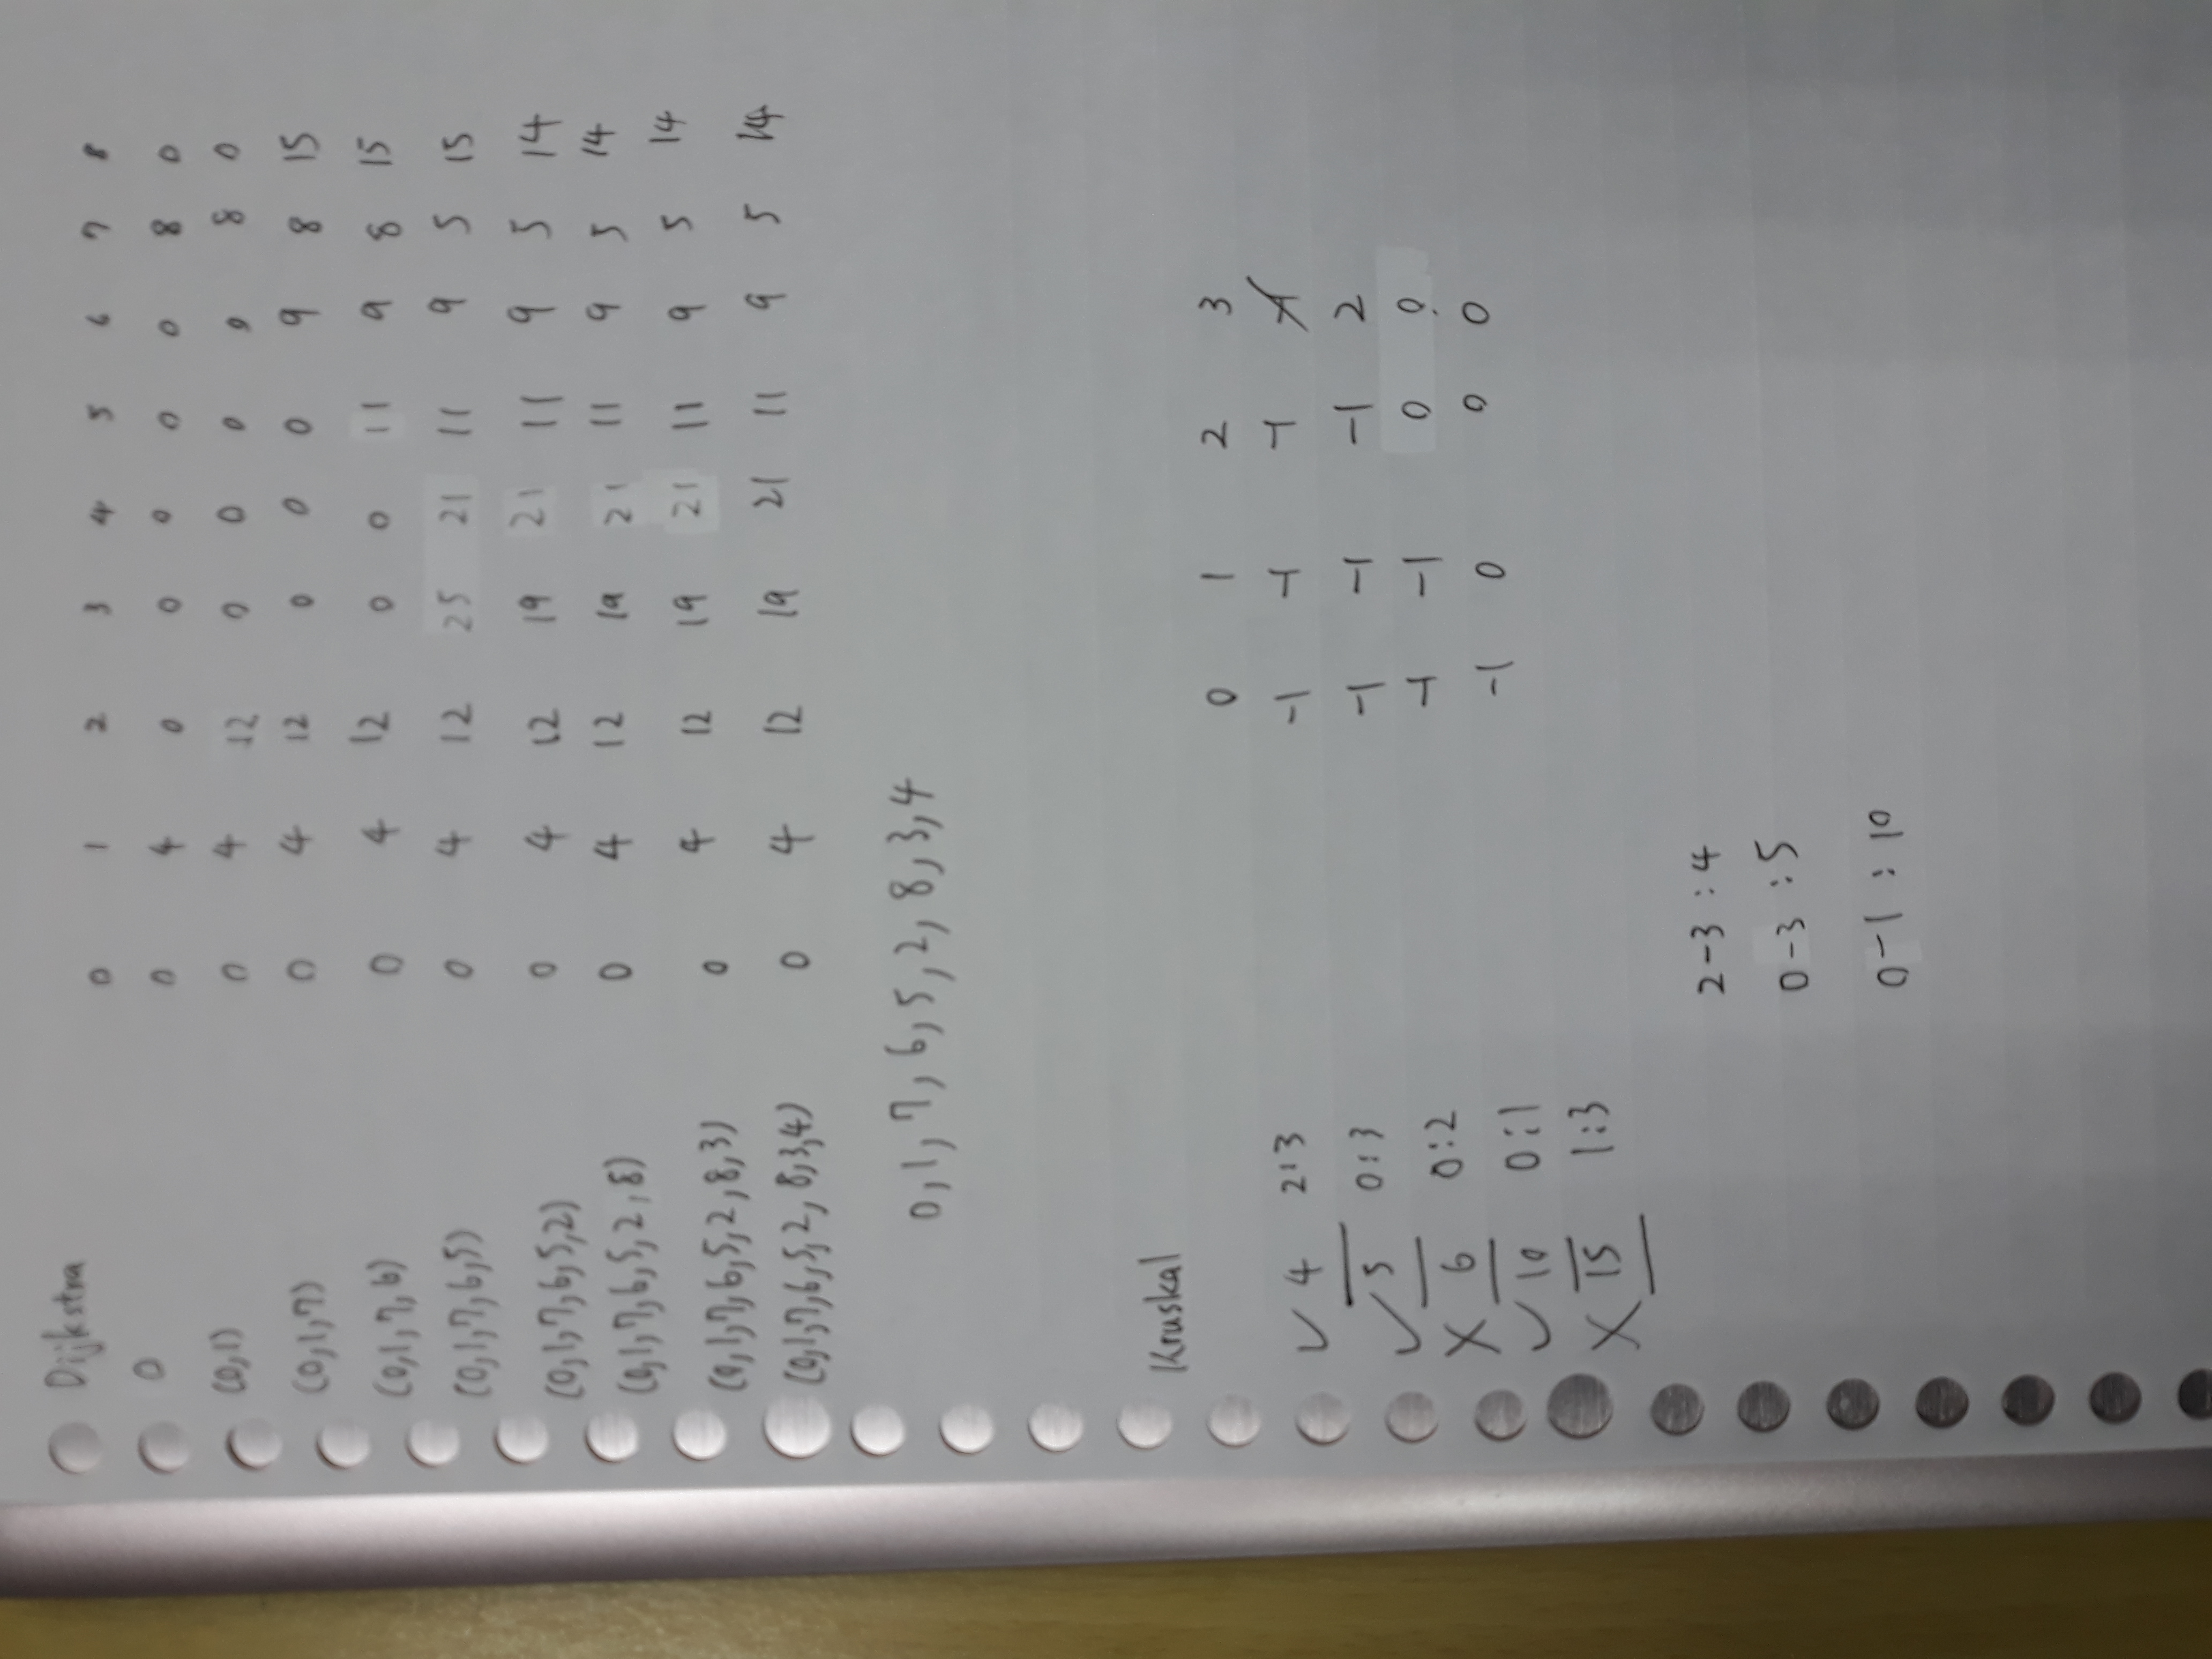 Dijkstra
0 1 2 3 4 5 6 7 8
0 0 4 0 0 0 0 0 8 0
(0,1) 0 4 12 0 0 0 0 8 0
(0,1,7) 0 4 12 0 0 0 9 8 15
(0,1,7,6) 0 4 12 0 0 11 9 8 15
(0,1,7,6,5) 0 4 12 25 21 11 9 5 15
(0,1,7,6,5,2) 0 4 12 19 21 11 9 5 14
(0,1,7,6,5,2,8) 0 4 12 19 21 11 9 5 14
(0,1,7,6,5,2,8,3) 0 4 12 19 21 11 9 5 14
(0,1,7,6,5,2,8,3,4) 0 4 12 19 21 11 9 5 14
0,1,7,6,5,2,8,3,4
Kruskal
0 1 2 3
✓ 4 2:3 -1 -1 -1 -1
✓ 5 0:3 -1 -1 -1 2
X 6 0:2 -1 -1 0 0
✓ 10 0:1 -1 0 0 0
X 15 1:3
2-3:4
0-3:5
0-1:10